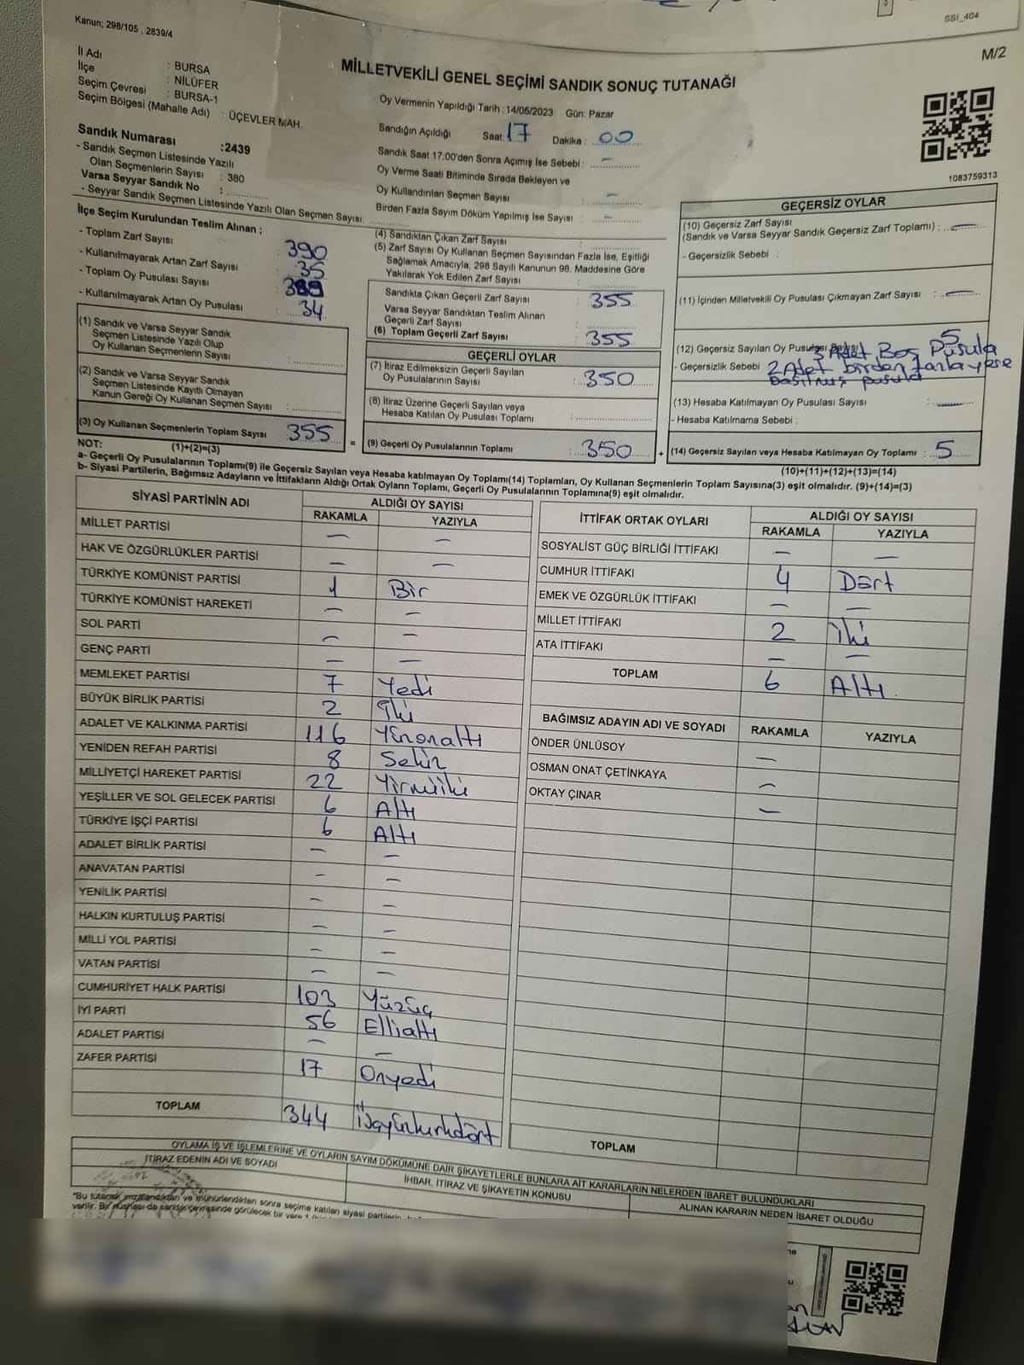 SSI_404
Kanun; 298/105 , 2839/4
M/2
MİLLETVEKİLİ GENEL SEÇİMİ SANDIK SONUÇ TUTANAĞI
İl Adı : BURSA
İlçe : NİLÜFER
Seçim Çevresi : BURSA-1
Seçim Bölgesi (Mahalle Adı) : ÜÇEVLER MAH.
Sandık Numarası :2439
- Sandık Seçmen Listesinde Yazılı
Olan Seçmenlerin Sayısı : 380
Varsa Seyyar Sandık No :
- Seyyar Sandık Seçmen Listesinde Yazılı Olan Seçmen Sayısı
Oy Vermenin Yapıldığı Tarih : 14/05/2023 Gün: Pazar
Sandığın Açıldığı Saat: 17 Dakika : 00
Sandık Saat 17:00'den Sonra Açımış İse Sebebi : -
Oy Verme Saati Bitiminde Sırada Bekleyen ve
Oy Kullandırılan Seçmen Sayısı : -
Birden Fazla Sayım Döküm Yapılmış İse Sayısı : -
1083759313
İlçe Seçim Kurulundan Teslim Alınan ;
- Toplam Zarf Sayısı : 390
- Kullanılmayarak Artan Zarf Sayısı : 35
- Toplam Oy Pusulası Sayısı : 389
- Kullanılmayarak Artan Oy Pusulası : 34
(1) Sandık ve Varsa Seyyar Sandık
Seçmen Listesinde Yazılı Olup
Oy Kullanan Seçmenlerin Sayısı :
(2) Sandık ve Varsa Seyyar Sandık
Seçmen Listesinde Kayıtlı Olmayan
Kanun Gereği Oy Kullanan Seçmen Sayısı :
(3) Oy Kullanan Seçmenlerin Toplam Sayısı : 355
(1)+(2)=(3)
(4) Sandıktan Çıkan Zarf Sayısı :
(5) Zarf Sayısı Oy Kullanan Seçmen Sayısından Fazla İse, Eşitliği
Sağlamak Amacıyla, 298 Sayılı Kanunun 98. Maddesine Göre
Yakılarak Yok Edilen Zarf Sayısı :
Sandıkta Çıkan Geçerli Zarf Sayısı : 355
Varsa Seyyar Sandıktan Teslim Alınan
Geçerli Zarf Sayısı :
(6) Toplam Geçerli Zarf Sayısı : 355
GEÇERLİ OYLAR
(7) İtiraz Edilmeksizin Geçerli Sayılan
Oy Pusulalarının Sayısı : 350
(8) İtiraz Üzerine Geçerli Sayılan veya
Hesaba Katılan Oy Pusulası Toplamı :
= (9) Geçerli Oy Pusulalarının Toplamı : 350
GEÇERSİZ OYLAR
(10) Geçersiz Zarf Sayısı
(Sandık ve Varsa Seyyar Sandık Geçersiz Zarf Toplamı) : -
- Geçersizlik Sebebi :
(11) İçinden Milletvekili Oy Pusulası Çıkmayan Zarf Sayısı : -
(12) Geçersiz Sayılan Oy Pusulası Sayısı : 5
- Geçersizlik Sebebi : 3 Adet Boş Pusula
2 Adet birden fazla yere
basılmış pusula
(13) Hesaba Katılmayan Oy Pusulası Sayısı : -
- Hesaba Katılmama Sebebi :
+ (14) Geçersiz Sayılan veya Hesaba Katılmayan Oy Toplamı : 5
(10)+(11)+(12)+(13)=(14)
NOT:
a- Geçerli Oy Pusulalarının Toplamı(9) ile Geçersiz Sayılan veya Hesaba katılmayan Oy Toplamı(14) Toplamları, Oy Kullanan Seçmenlerin Toplam Sayısına(3) eşit olmalıdır. (9)+(14)=(3)
b- Siyasi Partilerin, Bağımsız Adayların ve İttifakların Aldığı Ortak Oyların Toplamı, Geçerli Oy Pusulalarının Toplamına(9) eşit olmalıdır.
SİYASİ PARTİNİN ADI ALDIĞI OY SAYISI
RAKAMLA YAZIYLA
MİLLET PARTİSİ - -
HAK VE ÖZGÜRLÜKLER PARTİSİ - -
TÜRKİYE KOMÜNİST PARTİSİ 1 Bir
TÜRKİYE KOMÜNİST HAREKETİ - -
SOL PARTİ - -
GENÇ PARTİ - -
MEMLEKET PARTİSİ 7 Yedi
BÜYÜK BİRLİK PARTİSİ 2 İki
ADALET VE KALKINMA PARTİSİ 116 Yüzonaltı
YENİDEN REFAH PARTİSİ 8 Sekiz
MİLLİYETÇİ HAREKET PARTİSİ 22 Yirmiiki
YEŞİLLER VE SOL GELECEK PARTİSİ 6 Altı
TÜRKİYE İŞÇİ PARTİSİ 6 Altı
ADALET BİRLİK PARTİSİ - -
ANAVATAN PARTİSİ - -
YENİLİK PARTİSİ - -
HALKIN KURTULUŞ PARTİSİ - -
MİLLİ YOL PARTİSİ - -
VATAN PARTİSİ - -
CUMHURİYET HALK PARTİSİ 103 Yüzüç
İYİ PARTİ 56 Elliałtı
ADALET PARTİSİ - -
ZAFER PARTİSİ 17 Onyedi
TOPLAM 344 Üçyüzkırkdört
İTTİFAK ORTAK OYLARI ALDIĞI OY SAYISI
RAKAMLA YAZIYLA
SOSYALİST GÜÇ BİRLİĞİ İTTİFAKI - -
CUMHUR İTTİFAKI 4 Dört
EMEK VE ÖZGÜRLÜK İTTİFAKI - -
MİLLET İTTİFAKI 2 İki
ATA İTTİFAKI - -
TOPLAM 6 Altı
BAĞIMSIZ ADAYIN ADI VE SOYADI RAKAMLA YAZIYLA
ÖNDER ÜNLÜSOY -
OSMAN ONAT ÇETİNKAYA -
OKTAY ÇINAR -
TOPLAM
OYLAMA İŞ VE İŞLEMLERİNE VE OYLARIN SAYIM DÖKÜMÜNE DAİR ŞİKAYETLERLE BUNLARA AİT KARARLARIN NELERDEN İBARET BULUNDUKLARI
İTİRAZ EDENİN ADI VE SOYADI İHBAR, İTİRAZ VE ŞİKAYETİN KONUSU ALINAN KARARIN NEDEN İBARET OLDUĞU
"Bu tutanak imzalandıktan ve mühürlendikten sonra seçime katılan siyasi partilerin,